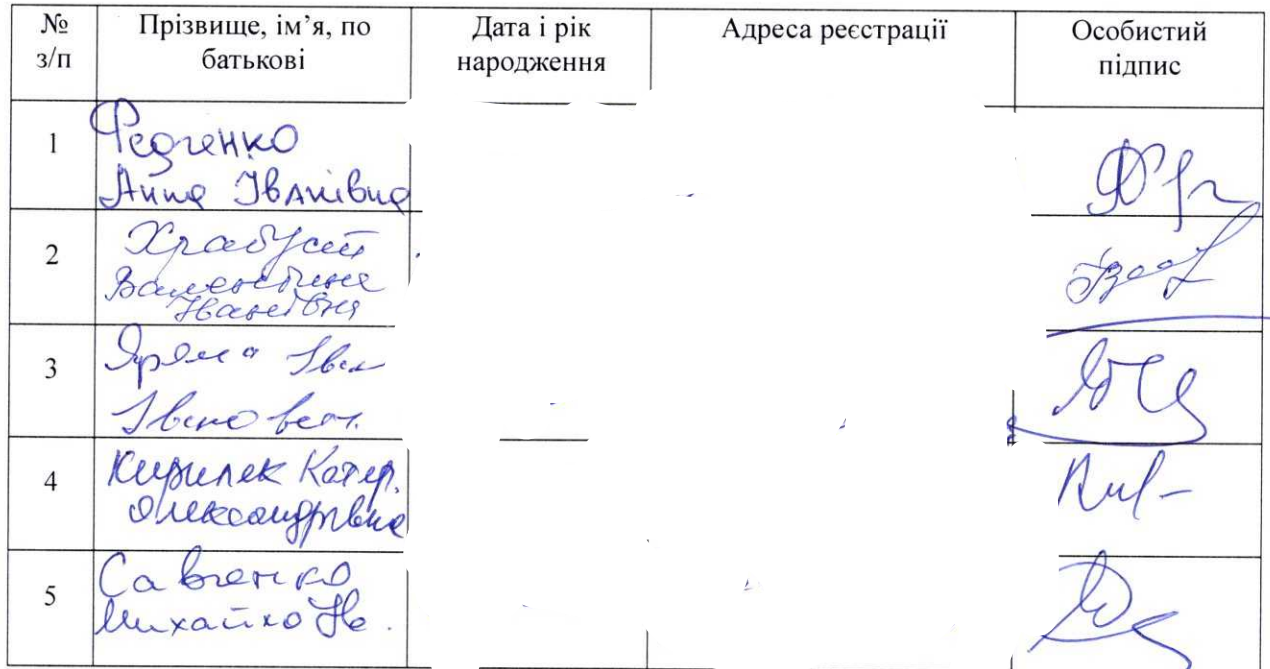 № з/п
Прізвище, ім’я, по батькові
Дата і рік народження
Адреса реєстрації
Особистий підпис
1
Федченко
Анна Іванівна
2
Храбуст
Валентина
Іванівна
3
Ярема Іван
Іванович
4
Кирилек Катер.
Олександрівна
5
Савченко
Михайло Ів.